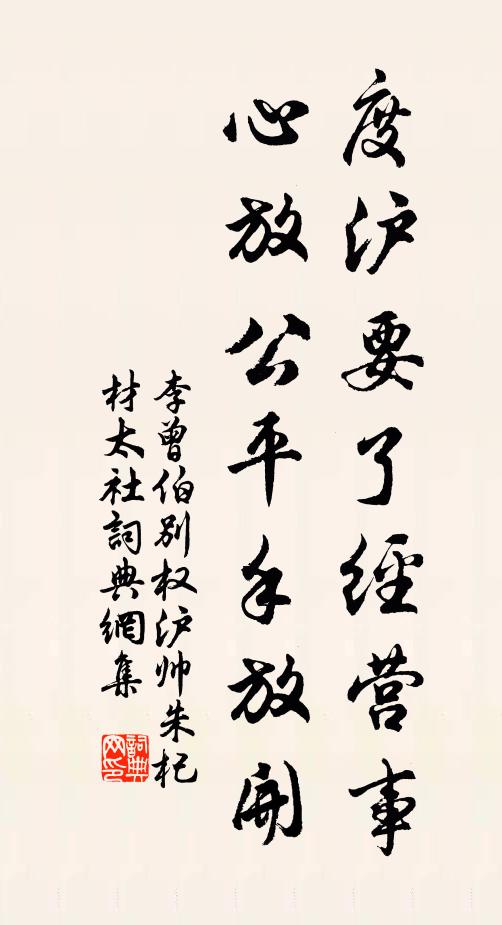 度沪要了经营事
心放公平手放开
李曾伯别权沪帅朱杞
材太社詞典網集
詞典
网印